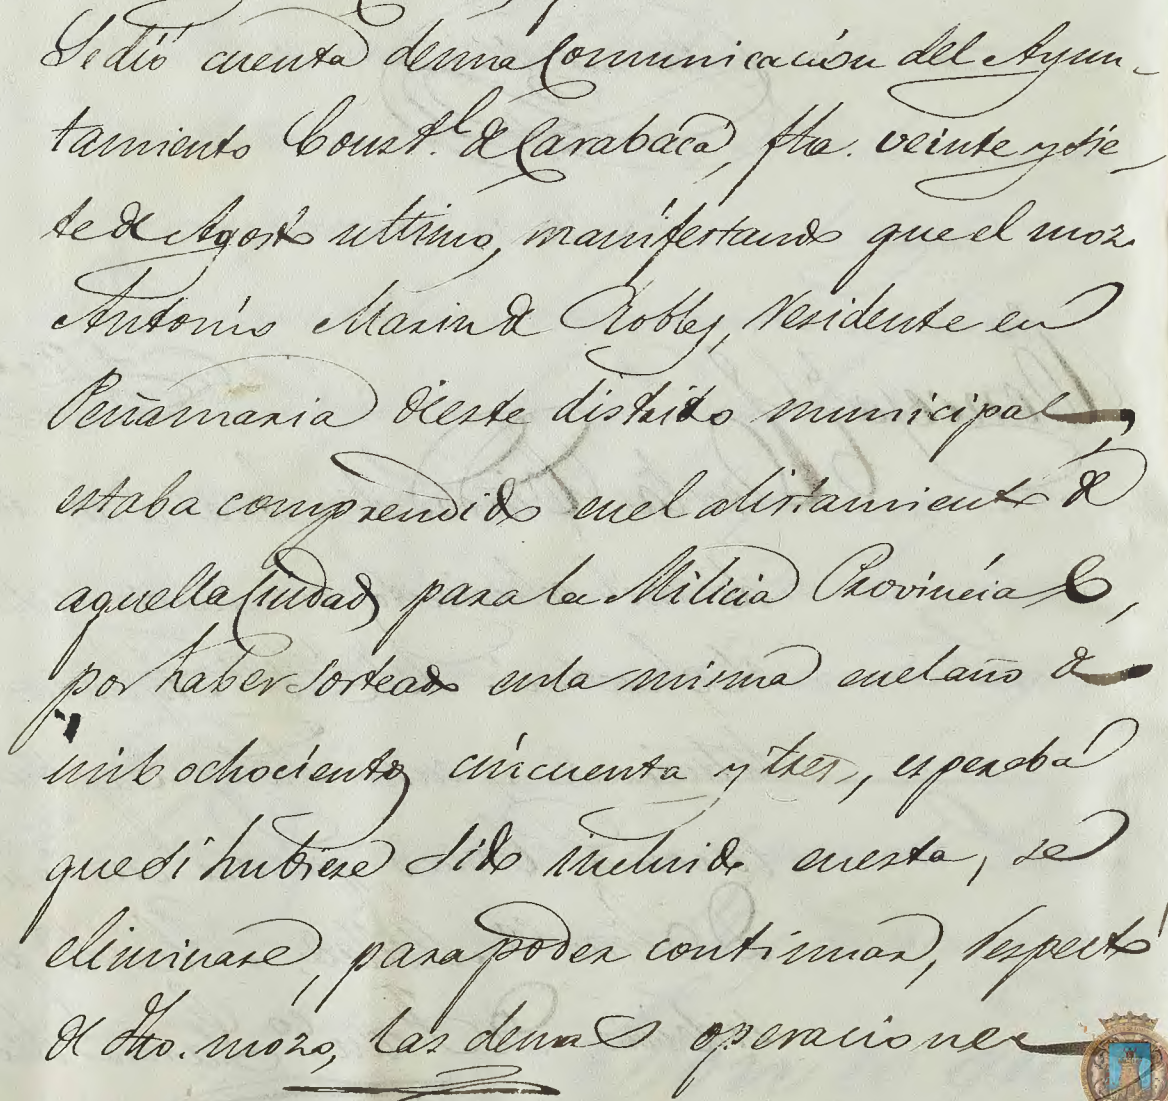 Se dió cuenta de una Comunicación del Ayun-
tamiento Const.l de Carabaca, fha. veinte y sie
te de Agosto ultimo, manifestando que el mozo
Antonio Marin de Robles, residente en
Peñamaria de este distrito municipal,
estaba comprendido en el alistamiento de
aquella Ciudad para la Milicia Provincial,
por haber sorteado en la misma en el año de
mil ochocientos cincuenta y tres, esperaba
que si hubiese sido incluido en esta, se
eliminase, para poder continuar, respecto
de dho. mozo, las demas operaciones